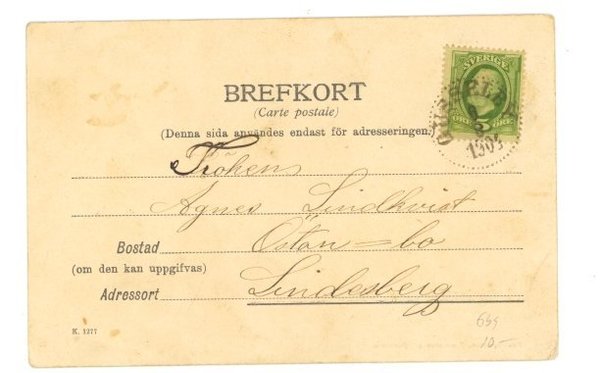 SVERIGE
BREFKORT
(Carte postale)
(Denna sida användes endast för adresseringen.)
Fröken
Agnes Lindkvist
Östan=bo
Bostad
(om den kan uppgifvas)
Adressort
Lindesberg
K. 1277
10.-